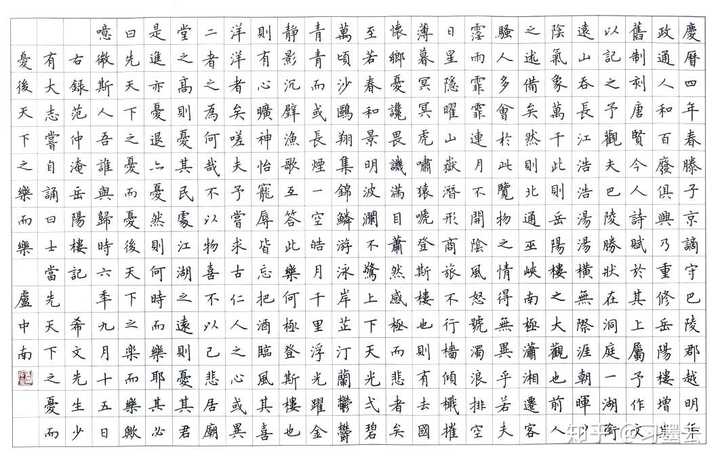 慶曆四年春滕子京謫守巴陵郡越明年
政通人和百廢俱興乃重修岳陽樓增其
舊制刻唐賢今人詩賦於其上屬予作文
以記之予觀夫巴陵勝狀在洞庭一湖銜
遠山吞長江浩浩湯湯橫無際涯朝暉夕
陰氣象萬千此則岳陽樓之大觀也前人
之述備矣然則北通巫峽南極瀟湘遷客
騷人多會於此覽物之情得無異乎若夫
霪雨霏霏連月不開陰風怒號濁浪排空
日星隱曜山嶽潛形商旅不行檣傾檝摧
薄暮冥冥虎嘯猿啼登斯樓也則有去國
懷鄉憂讒畏譏滿目蕭然感極而悲者矣
至若春和景明波瀾不驚上下天光一碧
萬頃沙鷗翔集錦鱗游泳岸芷汀蘭鬱鬱
青青而或長煙一空皓月千里浮光躍金
靜影沉璧漁歌互答此樂何極登斯樓也
則有心曠神怡寵辱皆忘把酒臨風其喜
洋洋者矣嗟夫予嘗求古仁人之心或異
二者之為何哉不以物喜不以己悲居廟
堂之高則憂其民處江湖之遠則憂其君
是進亦憂退亦憂然則何時而樂耶其必
曰先天下之憂而憂後天下之樂而樂歟
噫微斯人吾誰與歸時六年九月十五日
右錄范仲淹岳陽樓記 希文先生少
有大志嘗自誦曰士當先天下之憂而
憂後天下之樂而樂 盧中南
知乎 @习墨云